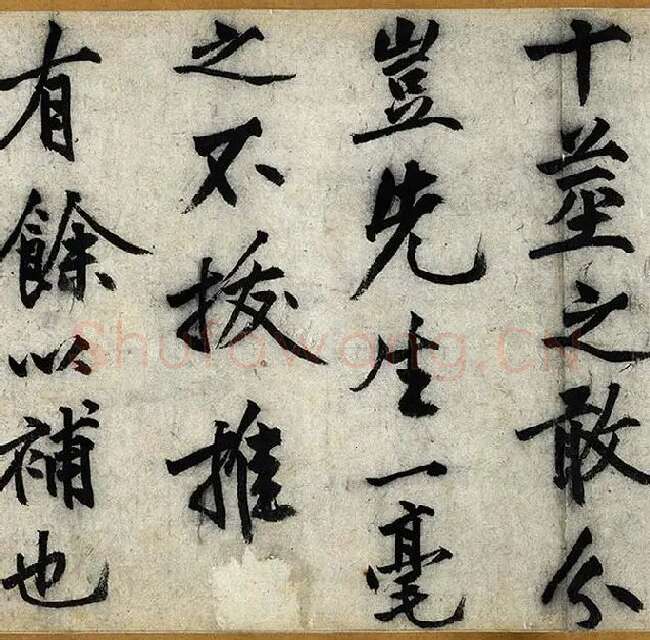 十莖之敢分
豈先生一毫
之不拔推
有餘以補也
Shufawang.CN